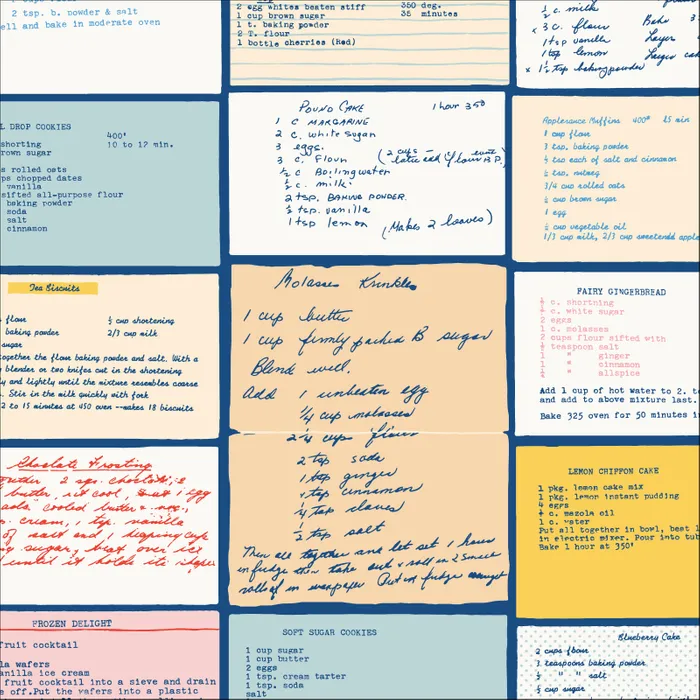 2 tsp. b. powder & salt
ell and bake in moderate oven
2 egg whites beaten stiff 350 deg.
1 cup brown sugar 35 minutes
1 t. baking powder
2 T. flour
1 bottle cherries (Red)
½ c. milk
x 3 c. flour Bake 3
1 tsp vanilla Layer
1 tsp lemon Large cak
x 1½ tsp bakingpowder
L DROP COOKIES
400'
shorting 10 to 12 min.
rown sugar
s rolled oats
ps chopped dates
vanilla
sifted all-purpose flour
baking powder
soda
salt
cinnamon
POUND CAKE 1 hour 350
1 c MARGARINE
2 c. white sugar
3 eggs.
3 c. Flour
½ c Boiling water
½ c. milk
2 tsp. BAKING POWDER.
½ tsp. vanilla
1 tsp lemon (Makes 2 loaves)
Applesauce Muffins 400° 25 min
1 cup flour
3 tsp. baking powder
½ tsp each of salt and cinnamon
½ tsp. nutmeg
3/4 cup rolled oats
½ cup brown sugar
1 egg
½ cup vegetable oil
1/3 cup milk, 2/3 cup sweetend apple
Tea Biscuits
flour ½ cup shortening
baking powder 2/3 cup milk
sugar
ogether the flour baking powder and salt. With a
blender or two knives cut in the shortening
y and lightly until the mixture resembles coarse
. Stir in the milk quickly with fork
2 to 15 minutes at 450 oven --makes 18 biscuits
Molasses Krinkles
1 cup butter
1 cup firmly packed B sugar
Blend well.
Add 1 unbeaten egg
¼ cup molasses
2¼ cups flour
2 tsp soda
1 tsp ginger
1 tsp cinnamon
½ tsp cloves
½ tsp salt
Then all together and let set 1 hour
in fridge then take out & roll in 2 5 inch
roll of in waxpaper Put in fridge
FAIRY GINGERBREAD
½ c. shortning
½ c. white sugar
2 eggs
1 c. molasses
2 cups flour sifted with
½ teaspoon salt
½ " ginger
½ " cinnamon
½ " allspice
Add 1 cup of hot water to 2. t
and add to above mixture last.
Bake 325 oven for 50 minutes i
Choclate Frosting
butter, 2 sqs. choclate, 2
butter, let cool, 1 egg
add cooled butter
p. cream, 1 tsp. vanilla
of salt and 1 heaping cup
g sugar, beat over ice
until it holds its shape
LEMON CHIFFON CAKE
1 pkg. lemon cake mix
1 pkg. lemon instant pudding
4 eggs
½ c. mazola oil
1 c. water
Put all together in bowl, best l
in electric mixer. Pour into tub
Bake 1 hour at 350'
FROZEN DELIGHT
fruit cocktail
la wafers
anilla ice cream
fruit cocktail into a sieve and drain
off.Put the wafers into a plastic
SOFT SUGAR COOKIES
1 cup sugar
1 cup butter
2 eggs
1 tsp. cream tarter
1 tsp. soda
salt
Blueberry Cake
2 cups flour
3 teaspoons baking powder
½ " " salt
½ cup sugar